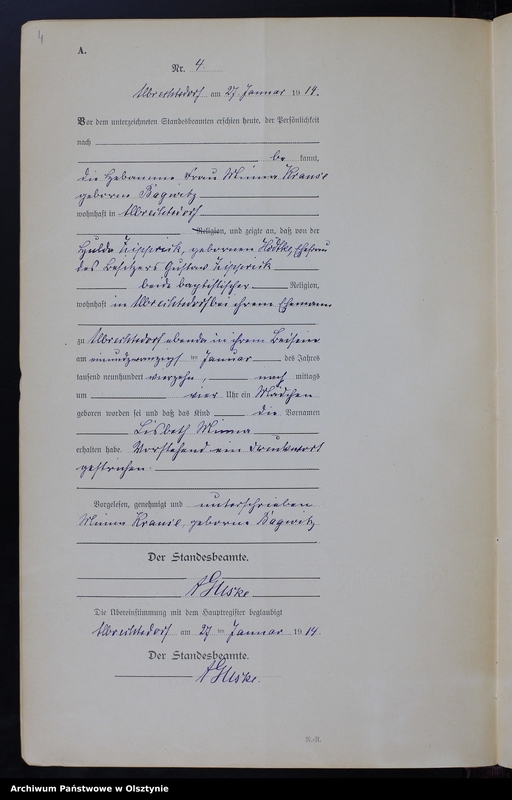 4
A.
Nr. 4.
Albrechtsdorf am 27. Januar 1914.
Vor dem unterzeichneten Standesbeamten erschien heute, der Persönlichkeit
nach
be kannt,
die Hebamme Frau Minna Krause
geborne Bagwitz
wohnhaft in Albrechtsdorf
Religion, und zeigte an, daß von der
Hulda Zipprick, gebornen Ehefrau
des Besitzers Gustav Zipprick
beide baptistischer Religion,
wohnhaft in Albrechtsdorf bei ihrem Ehemann
zu Albrechtsdorf ebenda in ihrem Beisein
am einundzwanzigsten Januar des Jahres
tausend neunhundert vierzehn, nach mittags
um vier Uhr ein Mädchen
geboren worden sei und daß das Kind die Vornamen
Lisbeth Minna
erhalten habe. Vorstehend ein Druckwort
gestrichen.
Vorgelesen, genehmigt und unterschrieben
Minna Krause, geborne Bagwitz
Der Standesbeamte.
Die Übereinstimmung mit dem Hauptregister beglaubigt
Albrechtsdorf am 27 ten Januar 1914.
Der Standesbeamte.
Archiwum Państwowe w Olsztynie